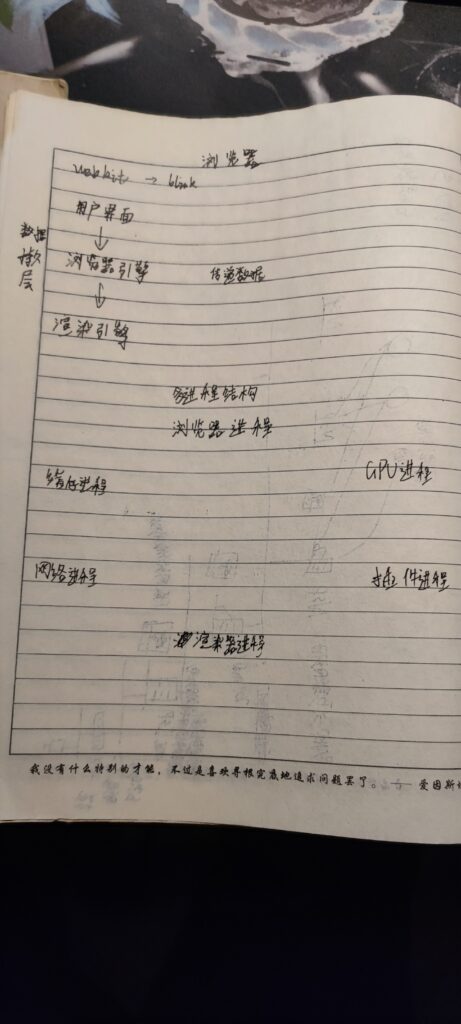 浏览器
webkit → blink
用户界面
↓
数据持久层
浏览器引擎 传递数据
↓
渲染引擎
多进程结构
浏览器进程
缓存进程 GPU进程
网络进程 插件进程
渲染器进程
我没有什么特别的才能，不过是喜欢寻根究底地追求问题罢了。—— 爱因斯